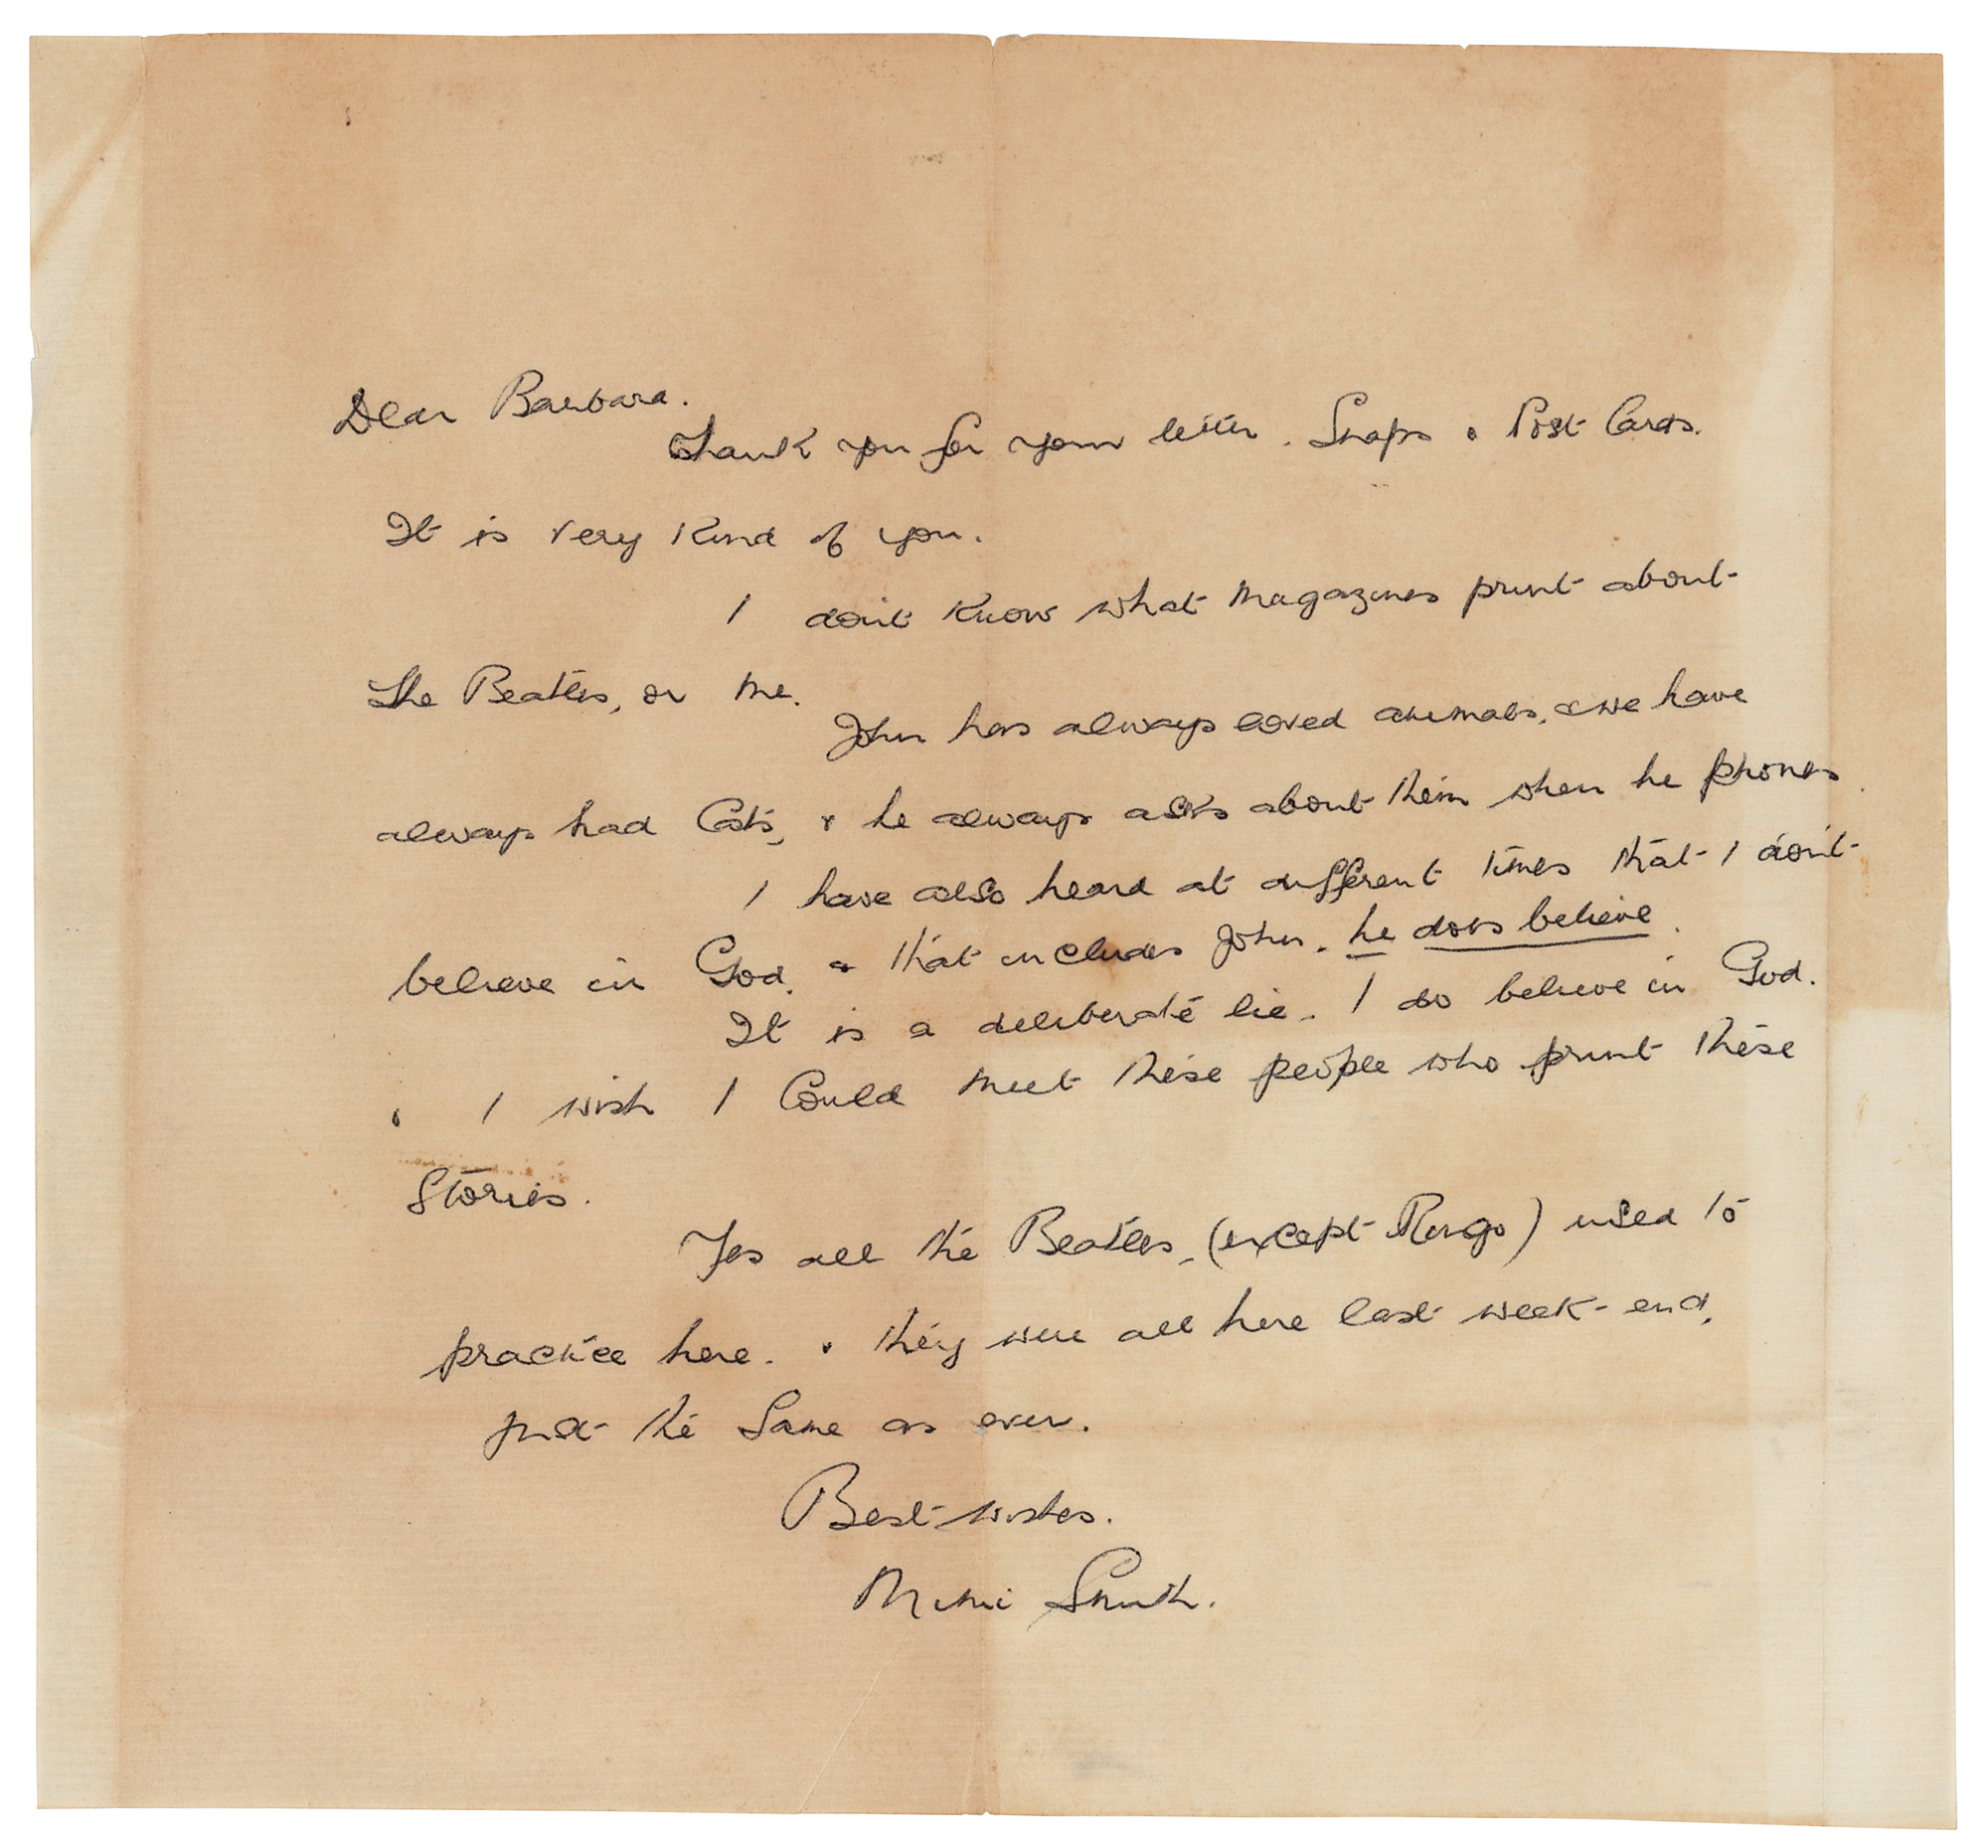 Dear Barbara.
Thank you for your letter. Snaps & Post Cards.
It is very kind of you.
I don't know what magazines print about
the Beatles, or me.
John has always loved animals, & we have
always had Cats, & he always asks about them when he phones.
I have also heard at different times that I don't
believe in God, & that includes John. he does believe.
It is a deliberate lie. I do believe in God.
& I wish I Could meet these people who print these
Stories.
Yes all the Beatles, (except Ringo) used to
practice here. & they were all here last week-end,
just the Same as ever.
Best wishes.
Mimi Smith.